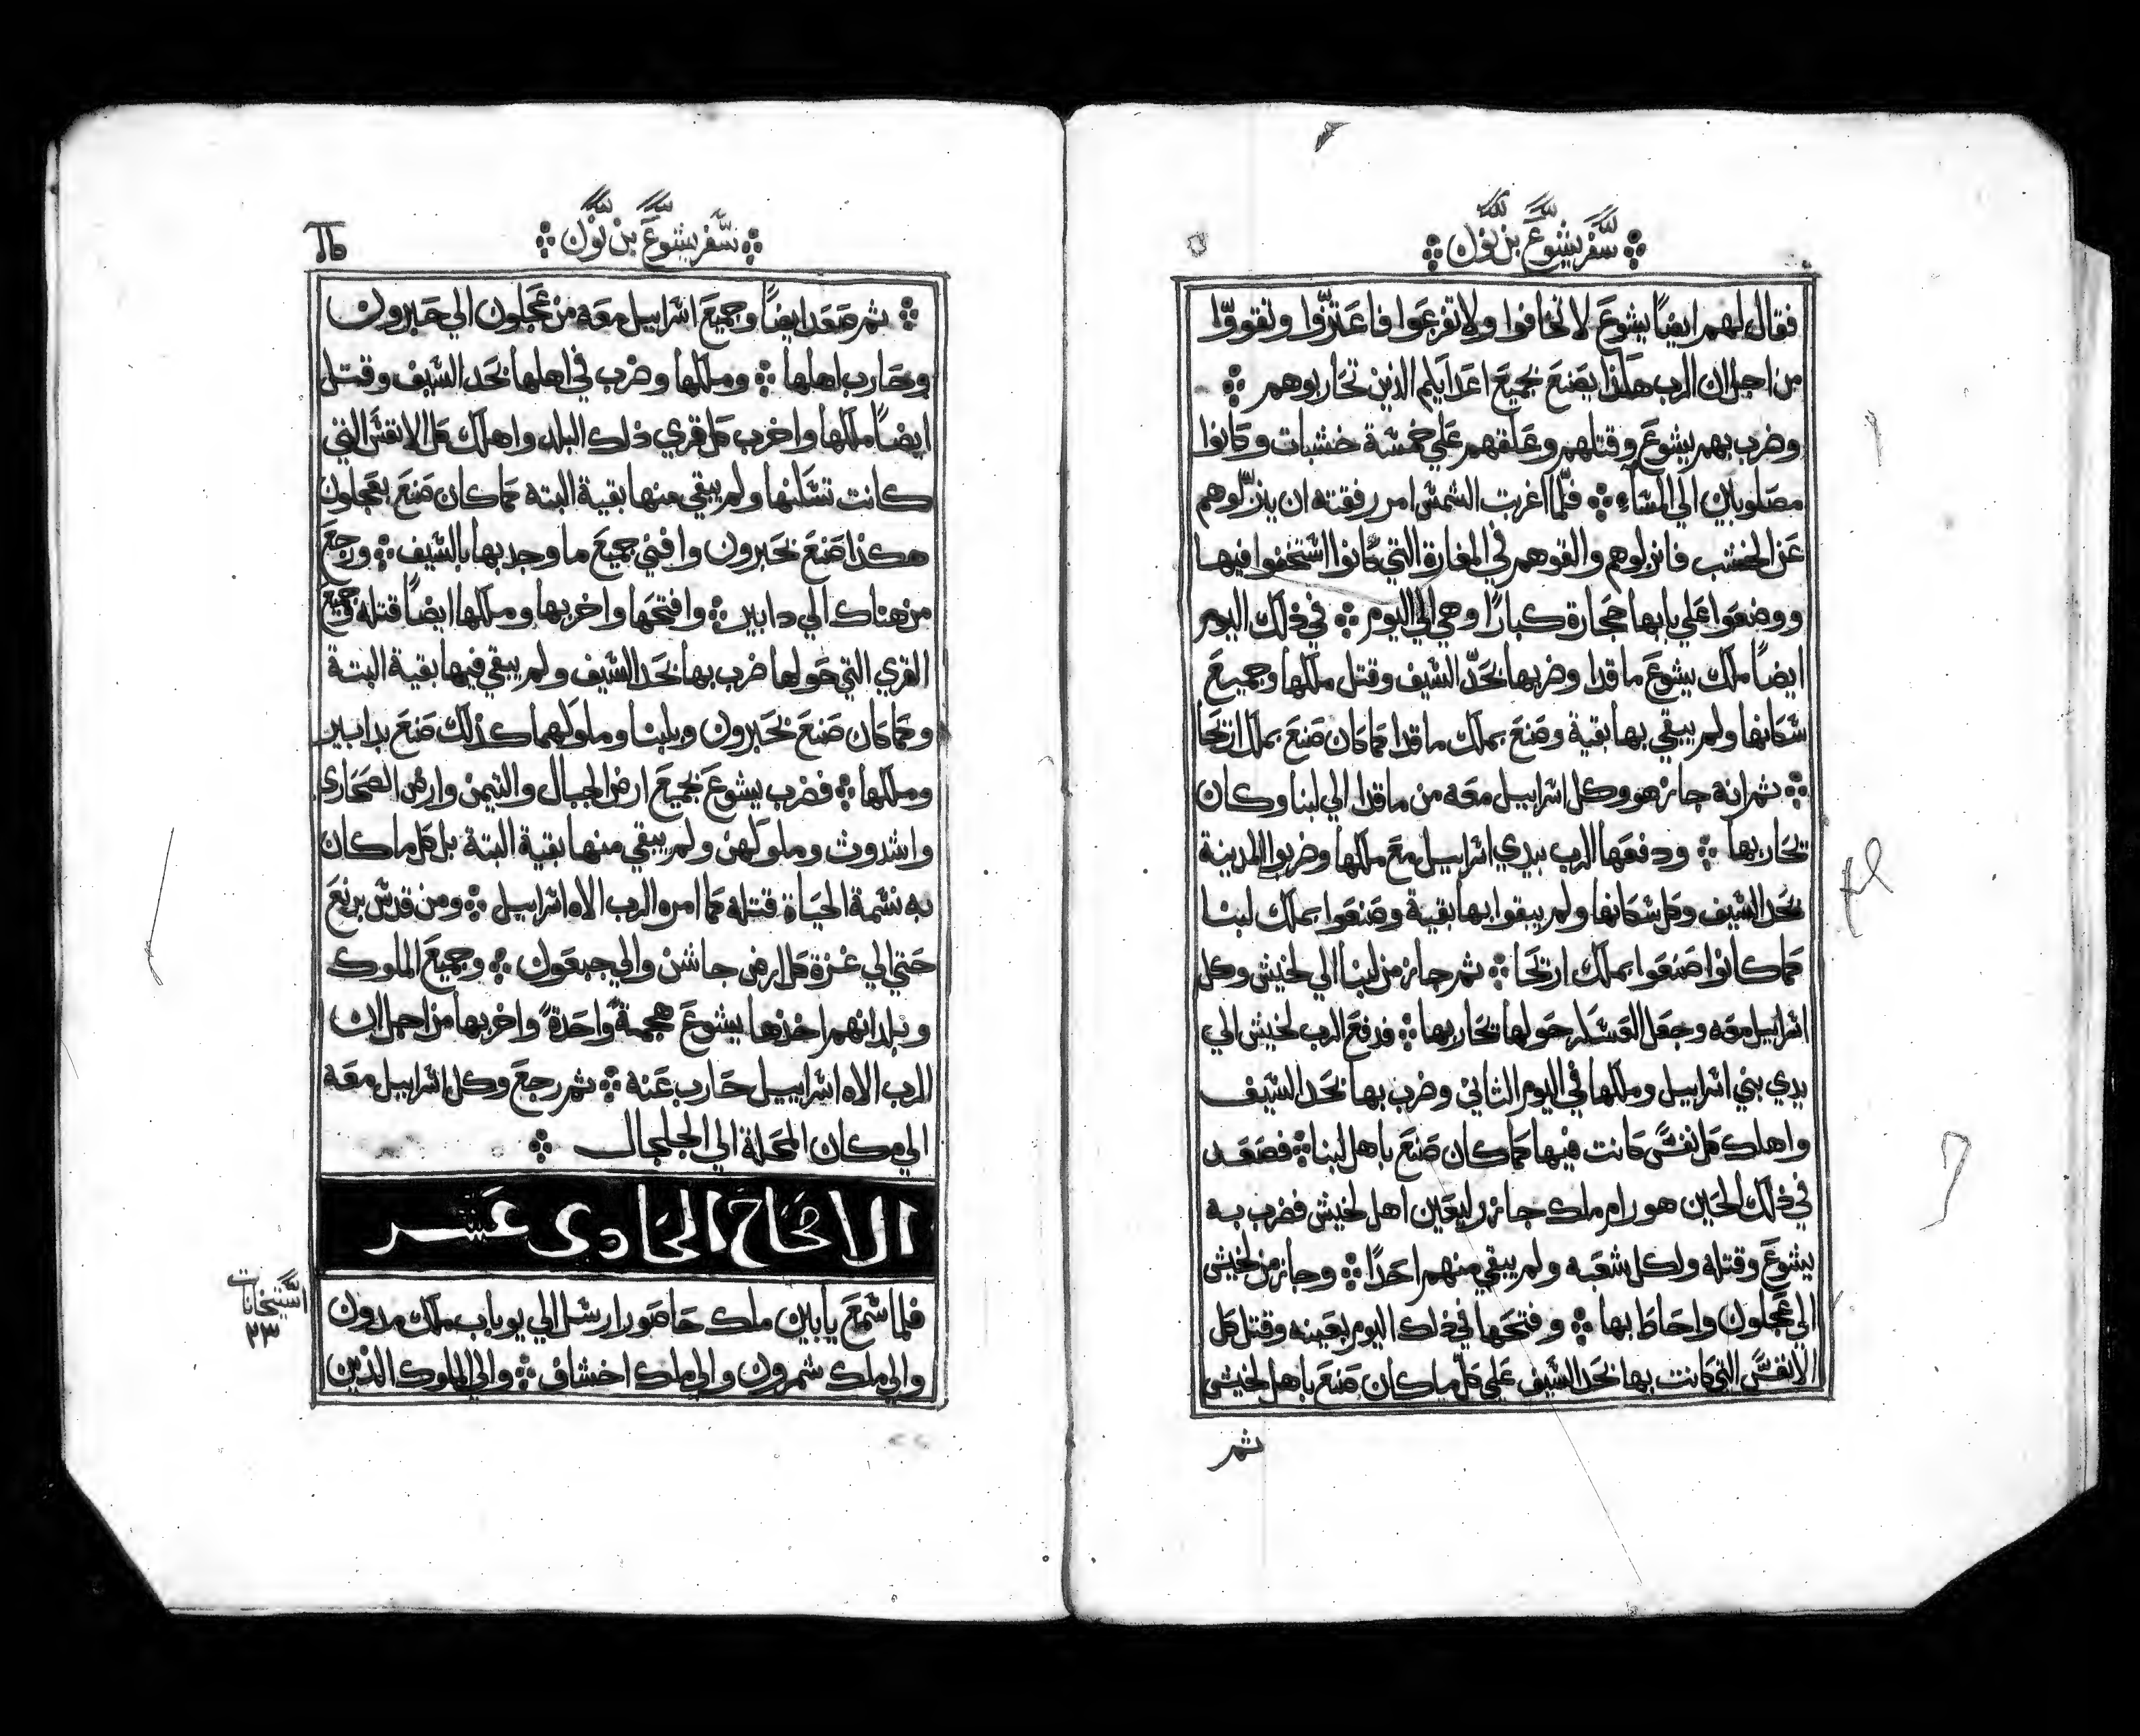 سفر يشوع بن نون
فقال لهم ايضاً يشوع لا تخافوا ولا تفزعوا فاعتزّوا وتقووّا
من اجل ان الرب هكذا يصنع بجميع اعدايكم الذين تحاربوهم
وضرب بهم يشوع وقتلهم وعلقهم علي خمسة خشبات وكانوا
مصلوبين الي المساء فلما اغربت الشمس امر رفقته ان ينزّلوهم
عن الخشب فانزلوهم والقوهم في المغارة التي كانوا استخفوا فيها
ووضعوا علي بابها حجارة كباراً وهي الي اليوم في ذلك اليوم
ايضاً ملك يشوع ماقدا وضربها بحدّ السيف وقتل ملكها وجميع
سكانها ولم يبقي بها بقية وصنع بملك ماقدا كما كان صنع بملك اريحا
ثم انه جاز هو وكل اسراييل معه من ماقدا الي لبنا وكان
يحاربها ودفعها الرب بيدي اسراييل مع ملكها وضربوا المدينة
بحد السيف وكل سكانها ولم يبقوا بها بقية وصنعوا بملك لبنا
كما كانوا صنعوا بملك اريحا ثم جاز من لبنا الي لخيش وكل
اسراييل معه وجعل العسكر حولها يحاربها فدفع الرب لخيش الي
يدي بني اسراييل وملكها في اليوم الثاني وضرب بها بحد السيف
واهلك كل نفس كانت فيها كما كان صنع باهل لبنا فصعد
في ذلك الحين هورام ملك جازر ليعين اهل لخيش فضرب به
يشوع وقتله ولكل شعبه ولم يبقي منهم احداً وجاز من لخيش
الي عجلون واحاط بها وفتحها في ذلك اليوم بعينه وقتل كل
الانفس التي كانت بها بحد السيف علي كل ما كان صنع باهل لخيش
ثم
سفر يشوع بن نون
ثم صعد ايضاً وجميع اسراييل معه من عجلون الي حبرون
وحارب اهلها وملكها وضرب في اهلها بحد السيف وقتل
ايضاً ملكها واخرب كل قري ذلك البلد واهلك كل الانفس التي
كانت تسكنها ولم يبقي منها بقية البته كما كان صنع بعجلون
هكذا صنع بحبرون وافني جميع ما وجد بها بالسيف ورجع
من هناك الي دابير وافتتحها واخربها وملكها ايضاً قتله وجميع
القري التي حولها ضرب بها بحد السيف ولم يبقي فيها بقية البتة
وكما كان صنع بحبرون وبلبنا وملوكهما كذلك صنع بدابير
وملكها فضرب يشوع بجميع ارض الجبال والتيمن وارض الصحاري
واشدوث وملوكهن ولم يبقي منها بقية البتة بل كل ما كان
به نسمة الحياة قتله كما امره الرب الاه اسراييل ومن قدس برنع
حتي الي غزة كل ارض جاشن والي جبعون وجميع الملوك
وبلدانهم اخذها يشوع هجمةً واحدةً واخربها من اجل ان
الرب الاه اسراييل حارب عنه ثم رجع وكل اسراييل معه
الي مكان المحلة الي الجلجال
الاصحاح الحادي عشر
فلما سمع يابين ملك حاصور ارسل الي يوباب ملك مدون
والي ملك شمرون والي ملك اخشاف والي الملوك الذين
استيخانات
٢٣